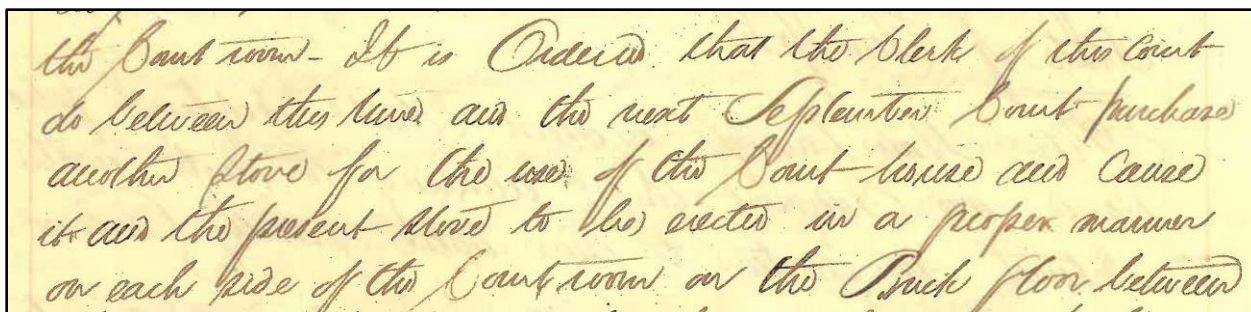 the Court room - It is Ordered that the Clerk of this Court
do between this time and the next September Court purchase
another Stove for the use of the Court house and Cause
it and the present stove to be erected in a proper manner
on each side of the Court room on the Brick floor between